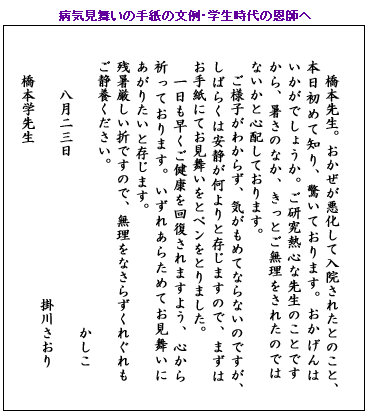 病気見舞いの手紙の文例・学生時代の恩師へ
橋本先生。おかぜが悪化して入院されたとのこと、
本日初めて知り、驚いております。おかげんは
いかがでしょうか。ご研究熱心な先生のことです
から、暑さのなか、きっとご無理をされたのでは
ないかと心配しております。
ご様子がわからず、気がもめてならないのですが、
しばらくは安静が何よりと存じますので、まずは
お手紙にてお見舞いをとペンをとりました。
一日も早くご健康を回復されますよう、心から
祈っております。いずれあらためてお見舞いに
あがりたいと存じます。
残暑厳しい折ですので、無理をなさらずくれぐれも
ご静養ください。
かしこ
八月二三日
掛川さおり
橋本学先生